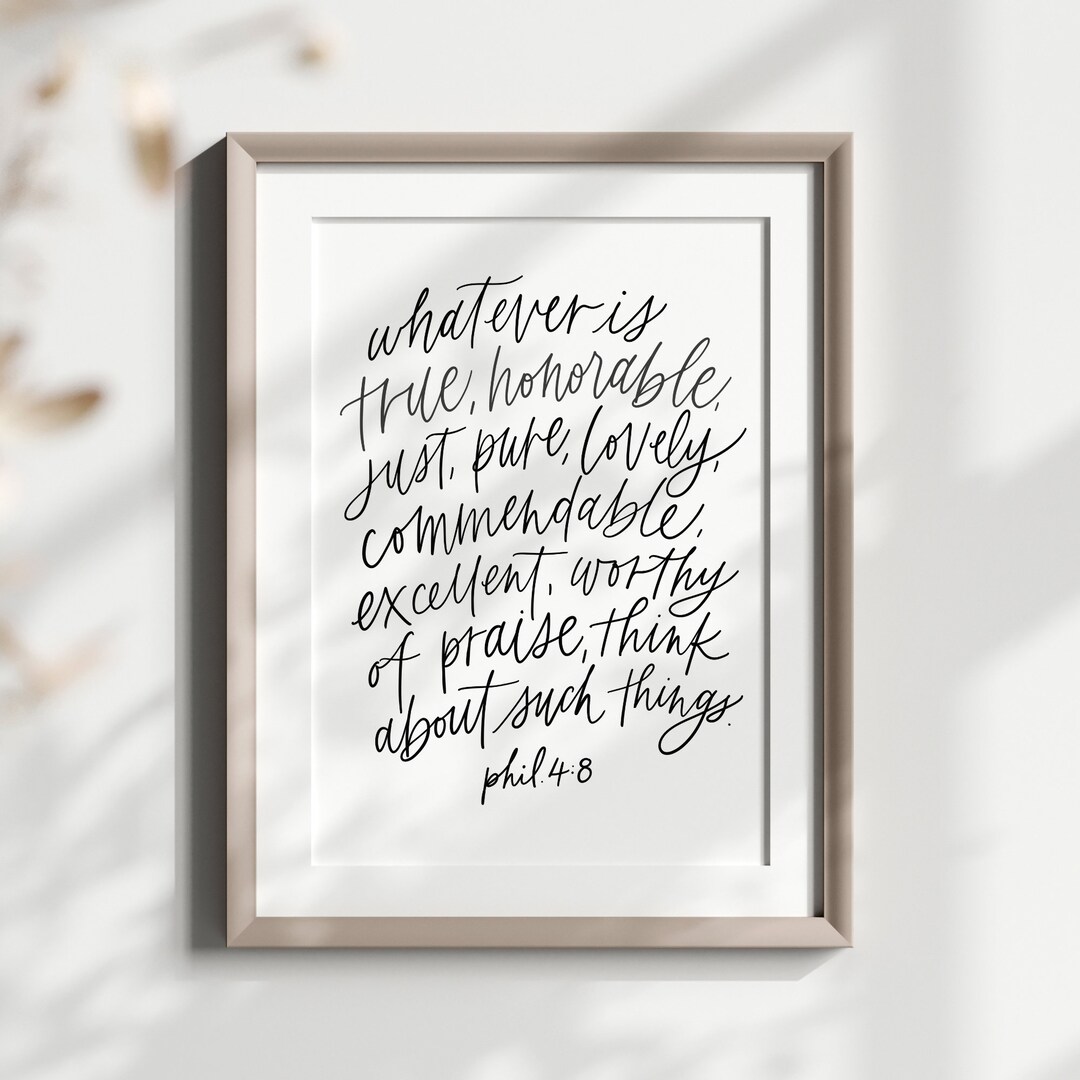 whatever is
true, honorable,
just, pure, lovely,
commendable,
excellent, worthy
of praise, think
about such things.
phil. 4:8